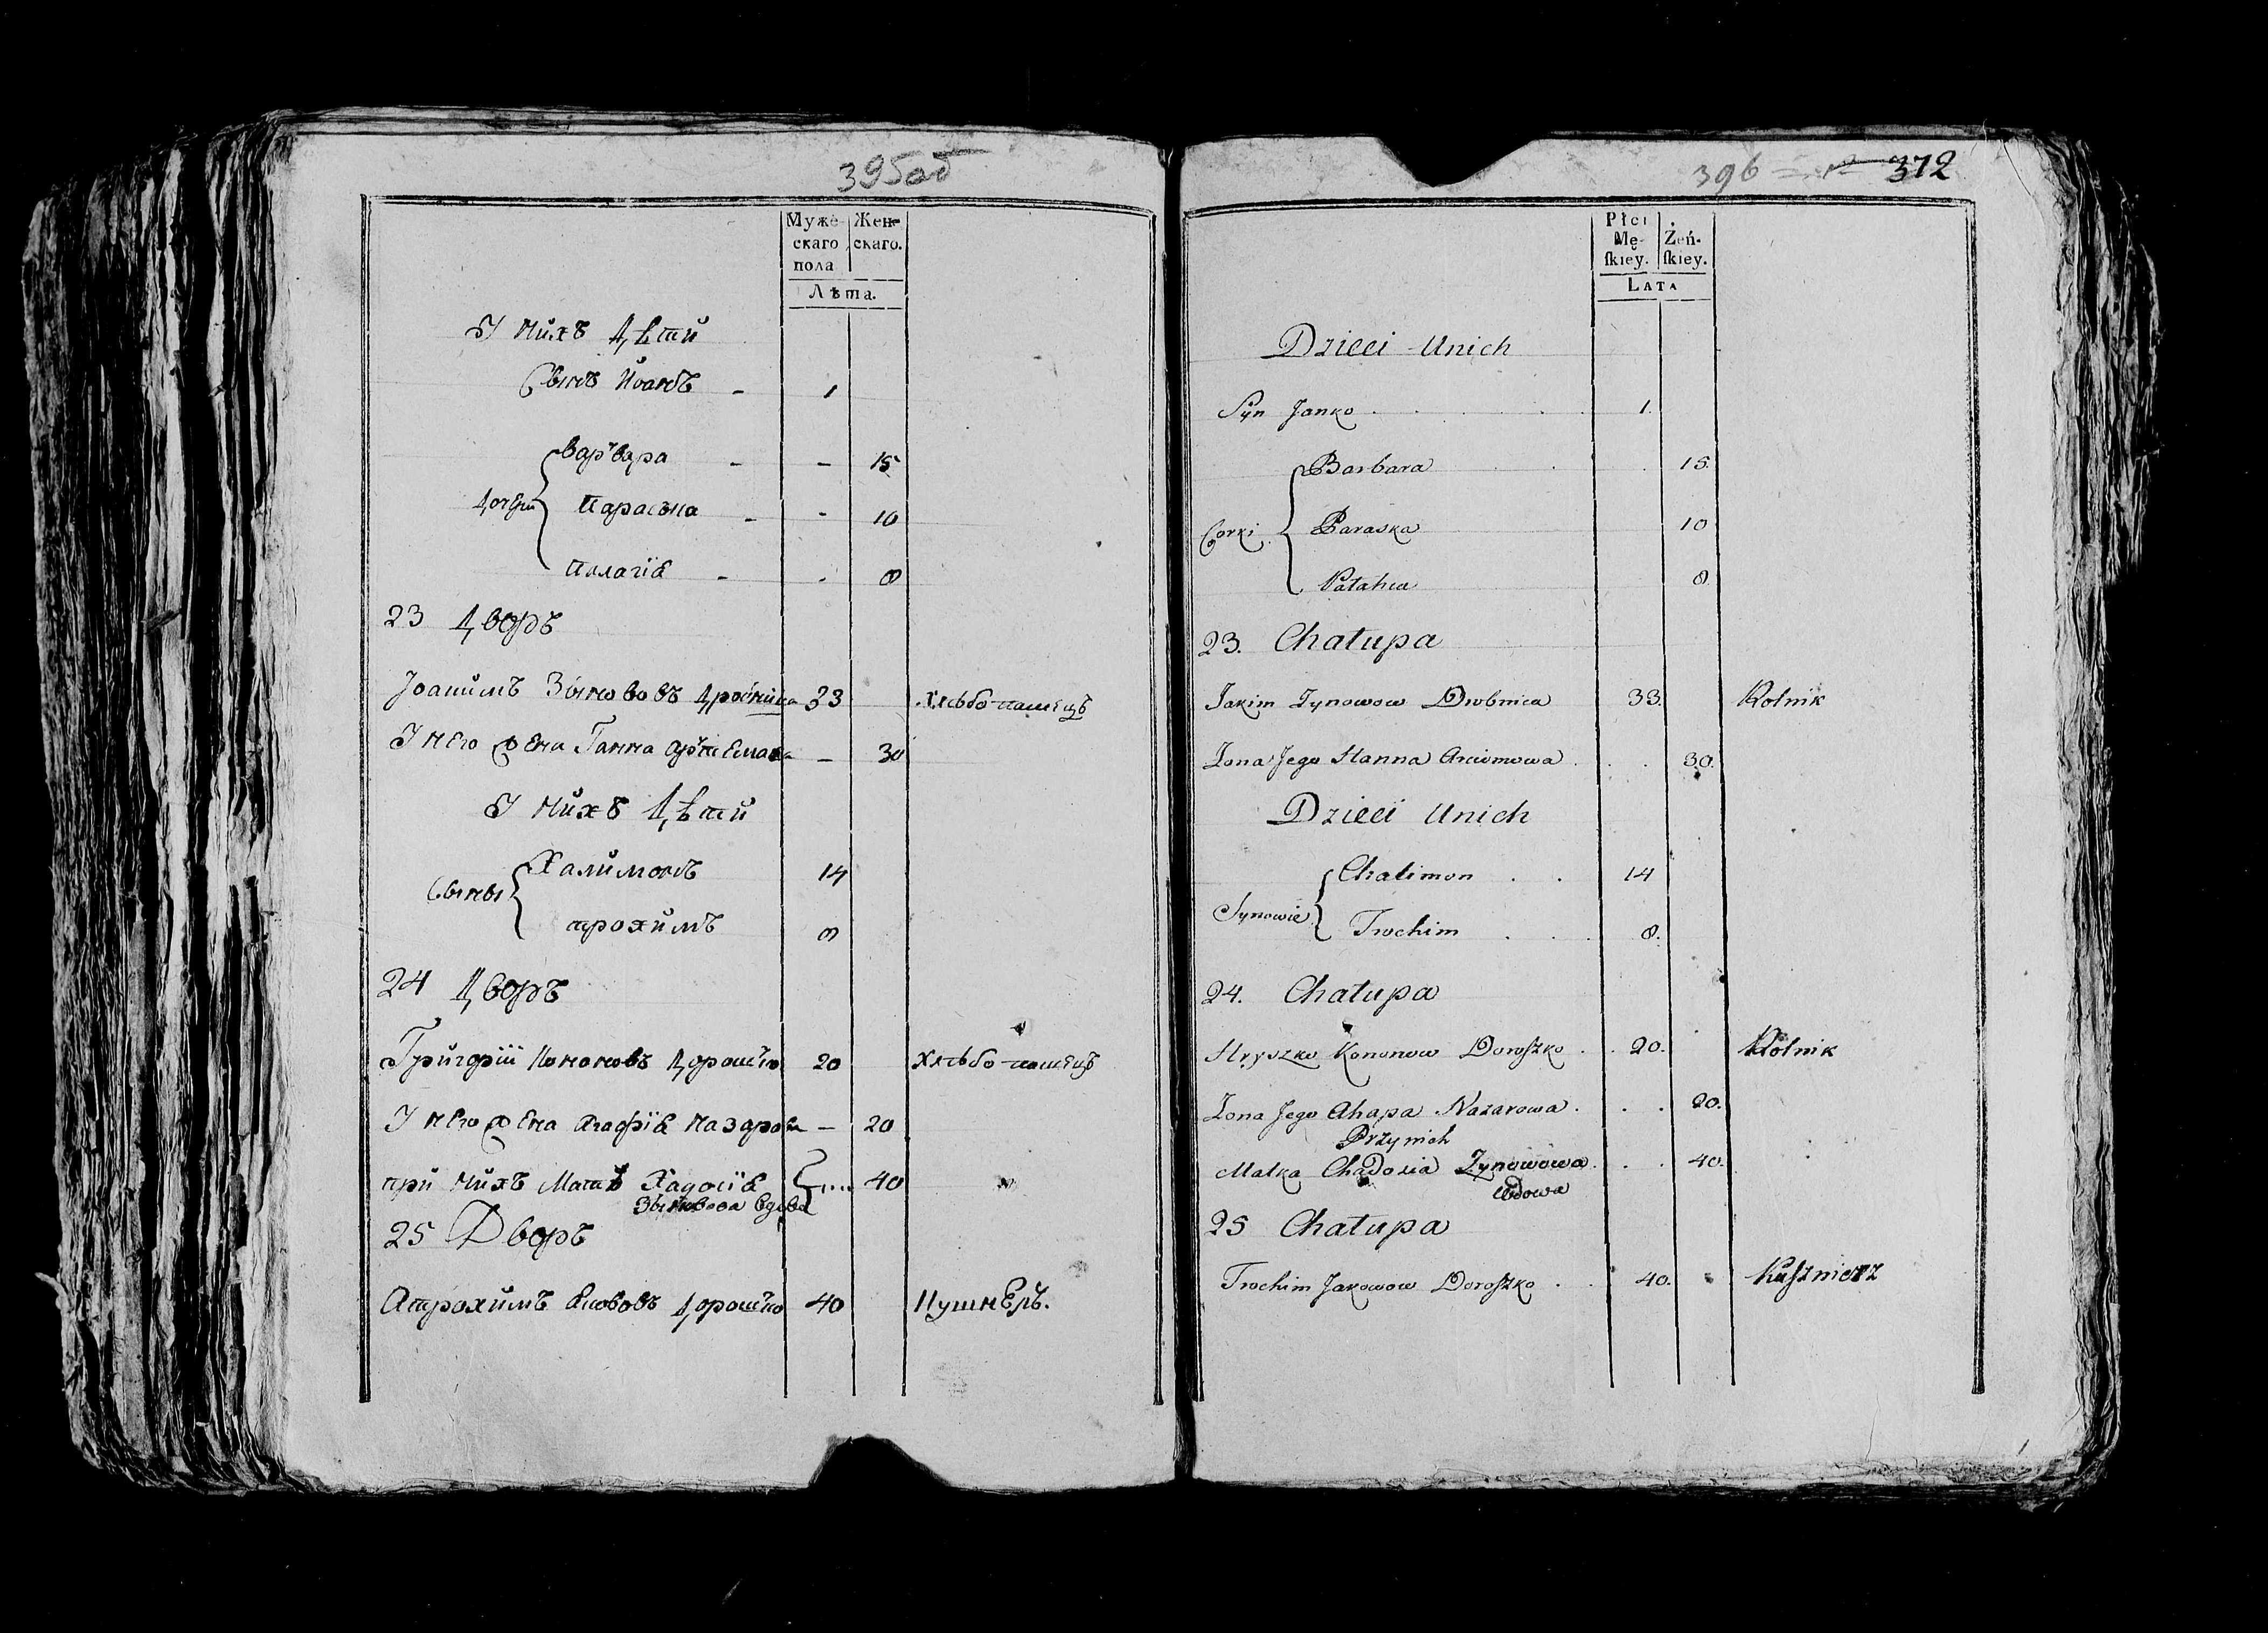 395об
Муже- Жен-
скаго скаго.
пола
Лѣта.
У нихъ дѣти
Сынъ Иоанъ - 1
Варъвара - - 15
дочери Параска - - 10
Палагія - - 8
23 дворъ
Іоакимъ Зынововъ 33 хлѣбо-пашецъ
У него жена Ганна Артемова - 30
У нихъ дѣти
Халимонъ 14
Сыны
трохимъ 8
24 дворъ
Григорій Кононовъ дорошко 20 хлѣбо-пашецъ
У него жена Агафія Назарова - 20
при нихъ Мать Хадосія 40
Зыновова вдова
25 Дворъ
Атрохимъ Якововъ дорошко 40 Кушнеръ.
396 372
Płci
Mę- Żeń-
ſkiey. ſkiey.
LATA
Dzieci Unich
Syn Janko . . . . 1.
Barbara . . . 15.
Corki Paraska 10
Patahia 8.
23. Chałupa
Jakim Zynowow Drobnica 33. Rolnik
Zona Jego Hanna Arciomowa . . . 30.
Dzieci Unich
Chalimon . . 14
Synowie
Trochim . . . 8.
24. Chałupa
Hryszko Kononow Doroſzko . . 20. Rolnik
Zona Jego Ahapa Nazarowa . . . 20.
Przynich
Matka Chadosia Zynowowa . . . 40.
Wdowa
25 Chałupa
Trochim Jakowow Doroſzko . . 40. Kuſznierz